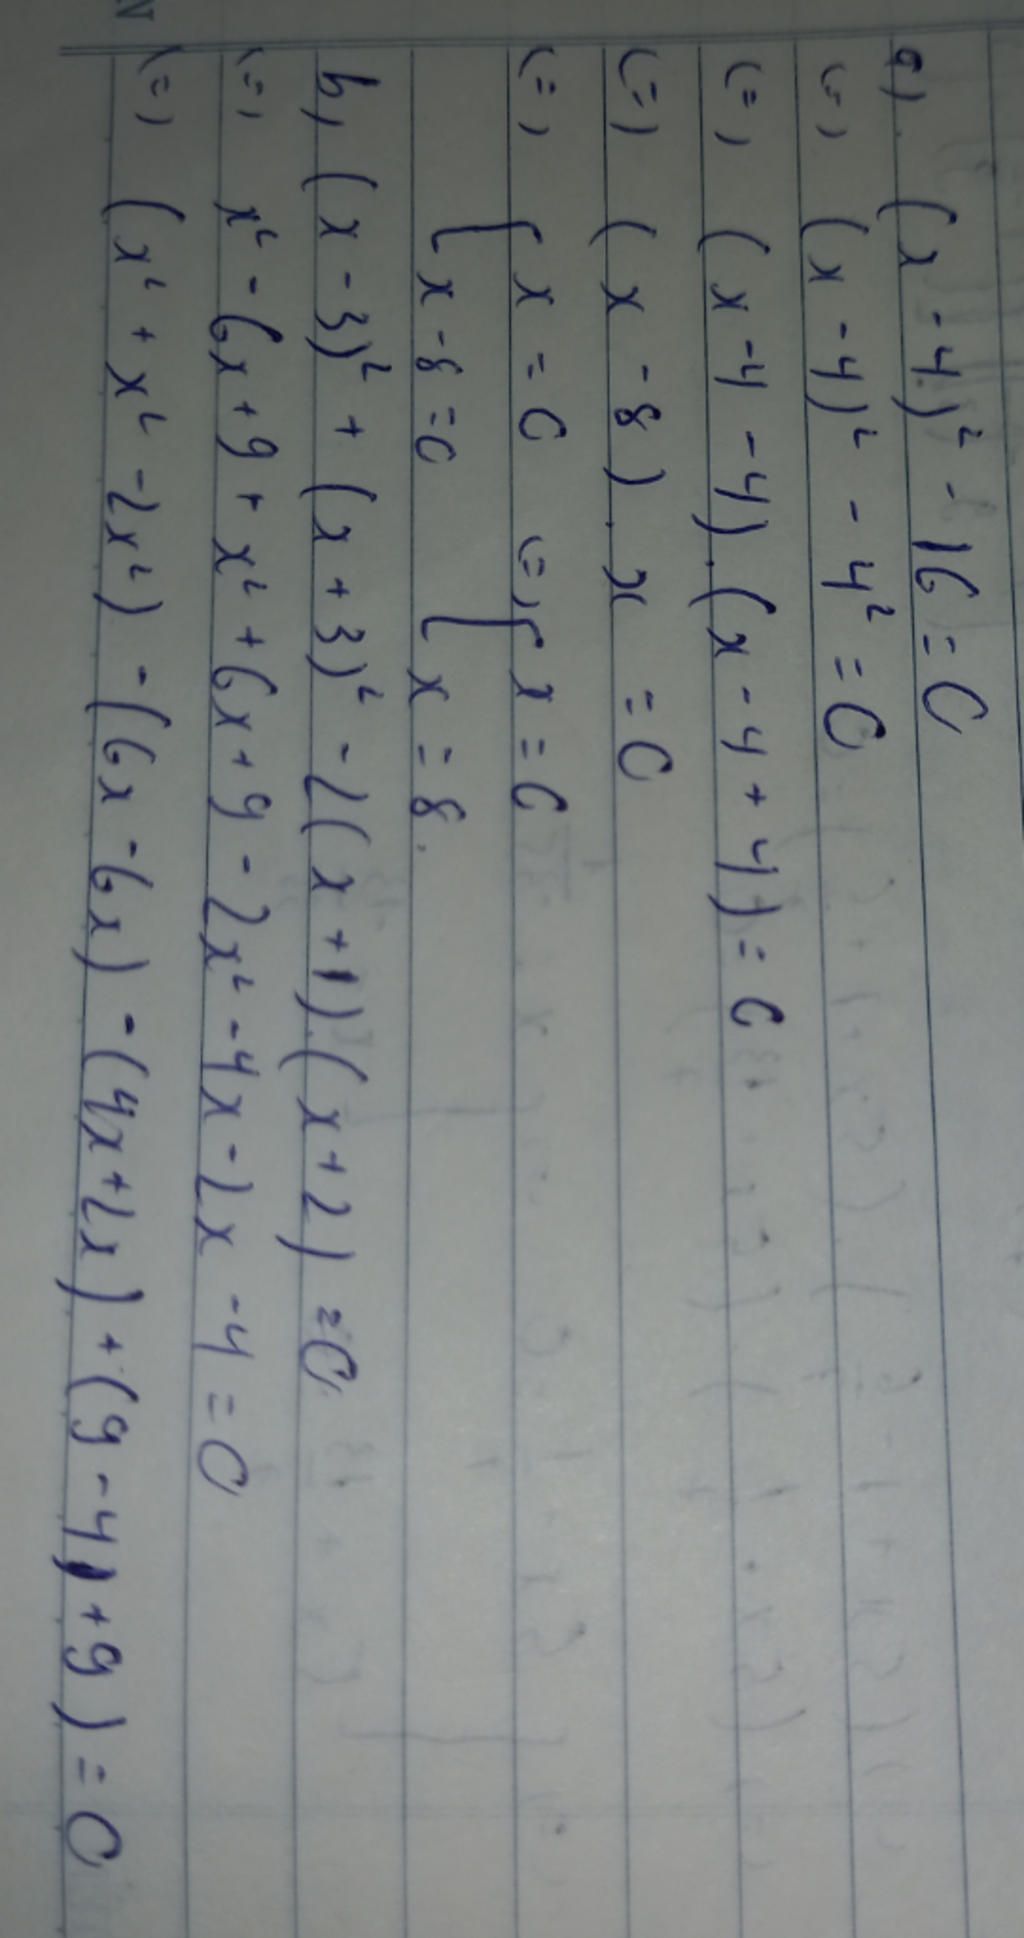 a). (x - 4)² - 16 = 0
(=) (x - 4)² - 4² = 0
(=) (x - 4 - 4).(x - 4 + 4) = 0
(=) (x - 8).x = 0
(=) [ x = 0 (=) [ x = 0
[ x - 8 = 0 [ x = 8.
b) (x - 3)² + (x + 3)² - 2(x + 1).(x + 2) = 0
(=) x² - 6x + 9 + x² + 6x + 9 - 2x² - 4x - 2x - 4 = 0
(=) (x² + x² - 2x²) - (6x - 6x) - (4x + 2x) + (9 - 4) + 9) = 0